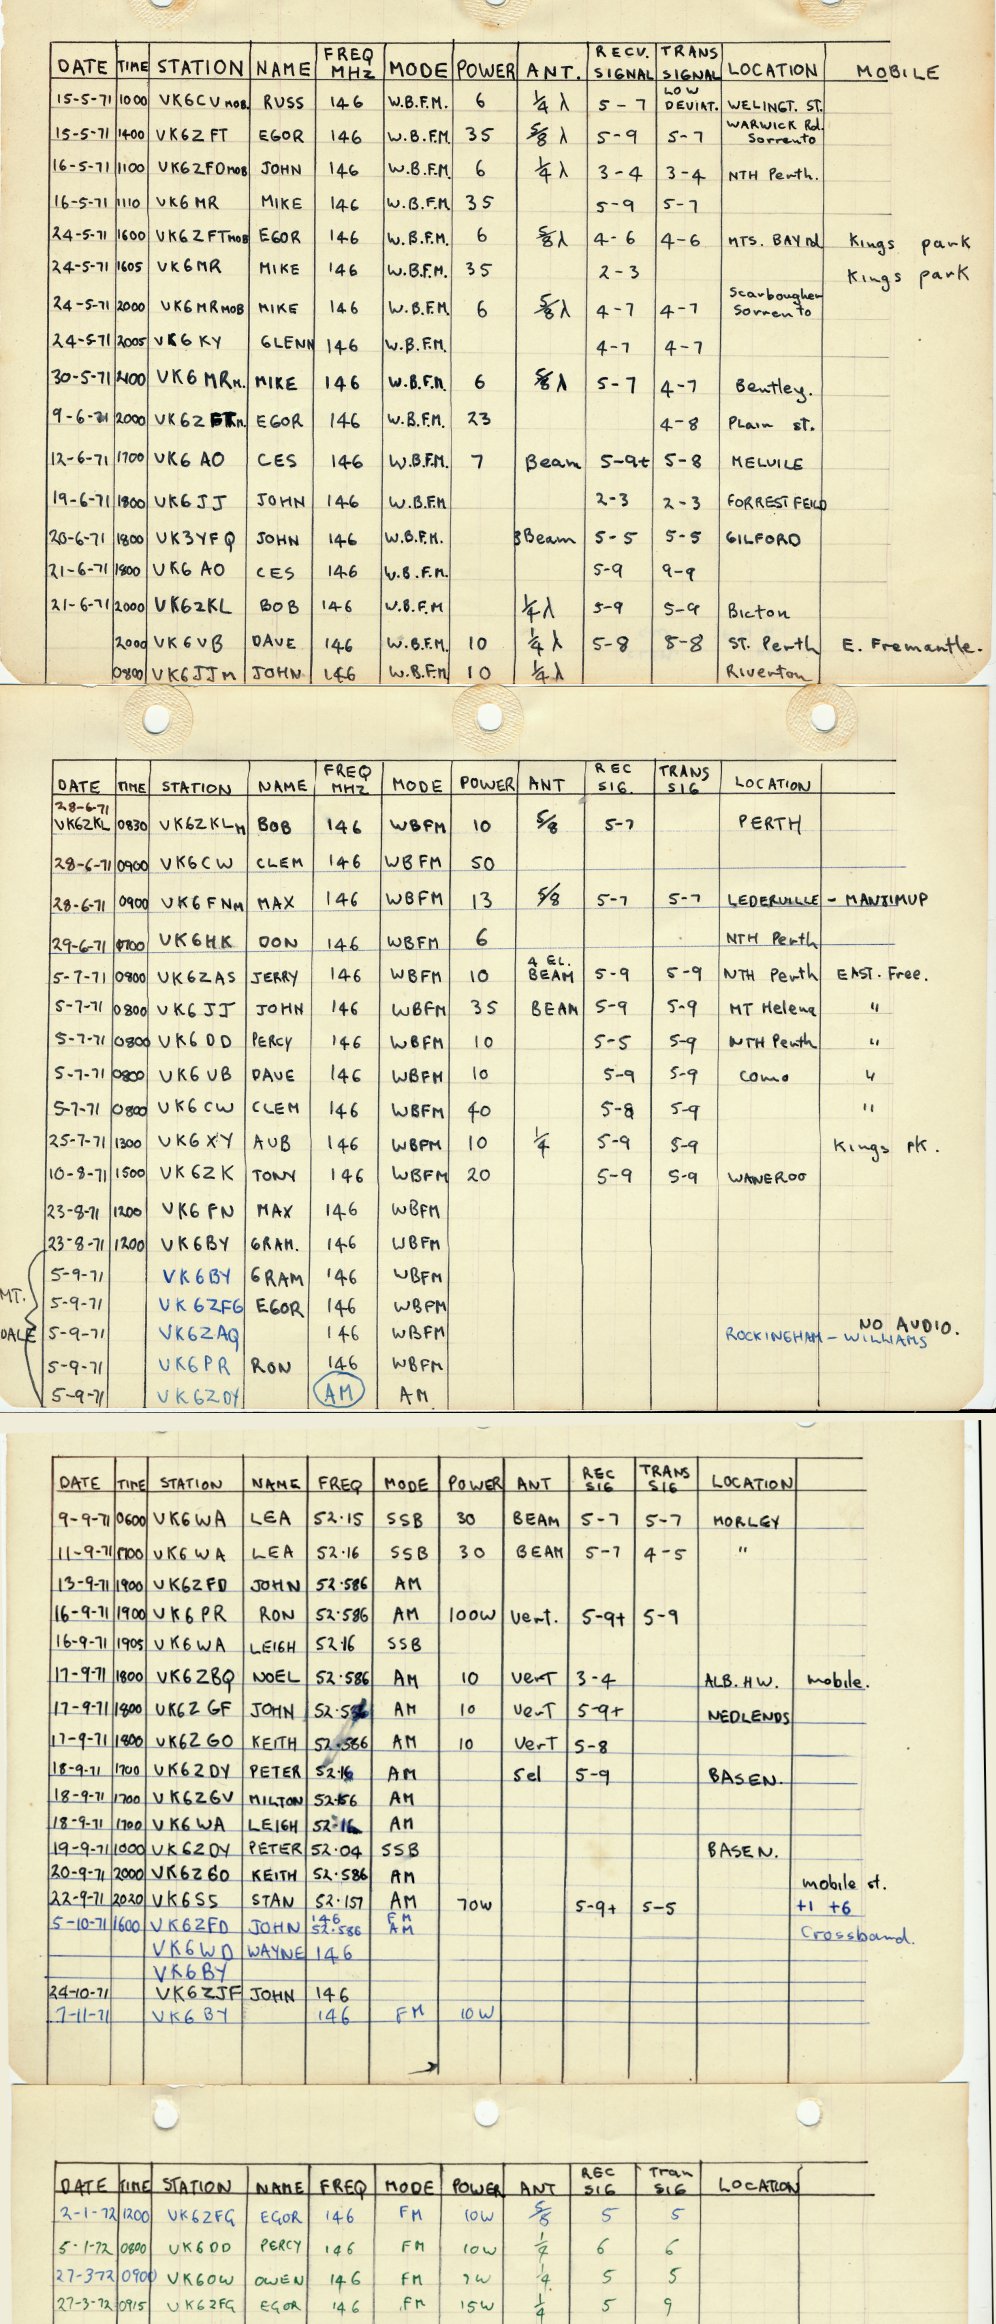 DATE TIME STATION NAME FREQ MHZ MODE POWER ANT. RECV. SIGNAL TRANS SIGNAL LOCATION MOBILE
15-5-71 1000 VK6CV MOB. RUSS 146 W.B.F.M. 6 ¼ λ 5-7 LOW DEVIAT. WELINGT. ST.
15-5-71 1400 VK6Z FT EGOR 146 W.B.F.M. 35 ⅝ λ 5-9 5-7 WARWICK Rd. Sorrento
16-5-71 1100 VK6ZFD MOB JOHN 146 W.B.F.M. 6 ¼ λ 3-4 3-4 NTH Perth.
16-5-71 1110 VK6 MR MIKE 146 W.B.F.M 35 5-9 5-7
24-5-71 1600 VK6ZFT MOB EGOR 146 W.B.F.M. 6 ⅝ λ 4-6 4-6 MTS. BAY Rd Kings park
24-5-71 1605 VK6MR MIKE 146 W.B.F.M. 35 2-3 Kings park
24-5-71 2000 VK6MR MOB MIKE 146 W.B.F.M 6 ⅝ λ 4-7 4-7 Scarbougher Sorrento
24-5-71 2005 VK6 KY GLENN 146 W.B.F.M. 4-7 4-7
30-5-71 2100 VK6 MR M. MIKE 146 W.B.F.M. 6 ⅝ λ 5-7 4-7 Bentley.
9-6-71 2000 VK6Z M. EGOR 146 W.B.F.M. 23 4-8 Plain st.
12-6-71 1700 VK6 AO CES 146 W.B.F.M. 7 Beam 5-9+ 5-8 MELVILE
19-6-71 1800 VK6JJ JOHN 146 W.B.F.M 2-3 2-3 FORREST FEILD
20-6-71 1800 VK3YFQ JOHN 146 W.B.F.M. Beam 5-5 5-5 GILFORD
21-6-71 1800 VK6 AO CES 146 W.B.F.M. 5-9 9-9
21-6-71 2000 VK6ZKL BOB 146 W.B.F.M ¼ λ 5-9 5-9 Bicton
2000 VK6VB DAVE 146 W.B.F.M. 10 ¼ λ 5-8 5-8 ST. Perth E. Fremantle.
0800 VK6JJM JOHN 146 W.B.F.M 10 ¼ λ Riverton
DATE TIME STATION NAME FREQ MHZ MODE POWER ANT REC SIG. TRANS SIG LOCATION
28-6-71 VK6ZKL 0830 VK6ZKLM BOB 146 WBFM 10 5/8 5-7 PERTH
28-6-71 0900 VK6CW CLEM 146 WBFM 50
28-6-71 0900 VK6FNM MAX 146 WBFM 13 5/8 5-7 5-7 LEDERVILLE - MANJIMUP
29-6-71 0700 VK6HK DON 146 WBFM 6 NTH Perth
5-7-71 0800 VK6ZAS JERRY 146 WBFM 10 4 EL. BEAM 5-9 5-9 NTH Perth EAST. Free.
5-7-71 0800 VK6JJ JOHN 146 WBFM 35 BEAM 5-9 5-9 MT Helena "
5-7-71 0800 VK6 DD PERCY 146 WBFM 10 5-5 5-9 NTH Perth "
5-7-71 0800 VK6 VB DAVE 146 WBFM 10 5-9 5-9 Como "
5-7-71 0800 VK6 CW CLEM 146 WBFM 40 5-8 5-9 "
25-7-71 1300 VK6XY AUB 146 WBFM 10 ¼ 5-9 5-9 Kings PK.
10-8-71 1500 VK6ZK TONY 146 WBFM 20 5-9 5-9 WANEROO
23-8-71 1200 VK6 FN MAX 146 WBFM
23-8-71 1200 VK6BY GRAM. 146 WBFM
5-9-71 VK6BY GRAM 146 WBFM
MT. 5-9-71 VK6ZFG EGOR 146 WBFM
DALE 5-9-71 VK6ZAQ 146 WBFM ROCKINGHAM - WILLIAMS NO AUDIO.
5-9-71 VK6PR RON 146 WBFM
5-9-71 VK6ZDY AM AM
DATE TIME STATION NAME FREQ MODE POWER ANT REC SIG TRANS SIG LOCATION
9-9-71 0600 VK6WA LEA 52.15 SSB 30 BEAM 5-7 5-7 MORLEY
11-9-71 1700 VK6WA LEA 52.16 SSB 30 BEAM 5-7 4-5 "
13-9-71 1900 VK6ZFD JOHN 52.586 AM
16-9-71 1900 VK6 PR RON 52.586 AM 100W Vert. 5-9+ 5-9
16-9-71 1905 VK6WA LEIGH 52.16 SSB
17-9-71 1800 VK6ZBQ NOEL 52.586 AM 10 Vert 3-4 ALB. HW. mobile.
17-9-71 1800 VK6Z GF JOHN 52.586 AM 10 Vert 5-9+ NEDLENDS
17-9-71 1800 VK6Z GO KEITH 52.586 AM 10 Vert 5-8
18-9-71 1700 VK6ZDY PETER 52.16 AM 5el 5-9 BASEN.
18-9-71 1700 VK6ZGV MILTON 52. AM
18-9-71 1700 VK6WA LEIGH 52.16 AM
19-9-71 1000 VK6ZDY PETER 52.04 SSB BASEN.
20-9-71 2000 VK6ZGO KEITH 52.586 AM mobile st.
22-9-71 2020 VK6SS STAN 52.157 AM 70W 5-9+ 5-5 +1 +6
5-10-71 1600 VK6ZFD JOHN 146 52.586 FM AM Crossband.
VK6WD WAYNE 146
VK6BY
24-10-71 VK6ZJF JOHN 146
7-11-71 VK6BY 146 FM 10W
DATE TIME STATION NAME FREQ MODE POWER ANT REC SIG Tran SIG LOCATION
2-1-72 1200 VK6ZFG EGOR 146 FM 10W 5/8 5 5
5-1-72 0800 VK6DD PERCY 146 FM 10W ¼ 6 6
27-3-72 0900 VK6OW OWEN 146 FM 7W ¼ 5 5
27-3-72 0915 VK6ZFG EGOR 146 FM 15W ¼ 5 9